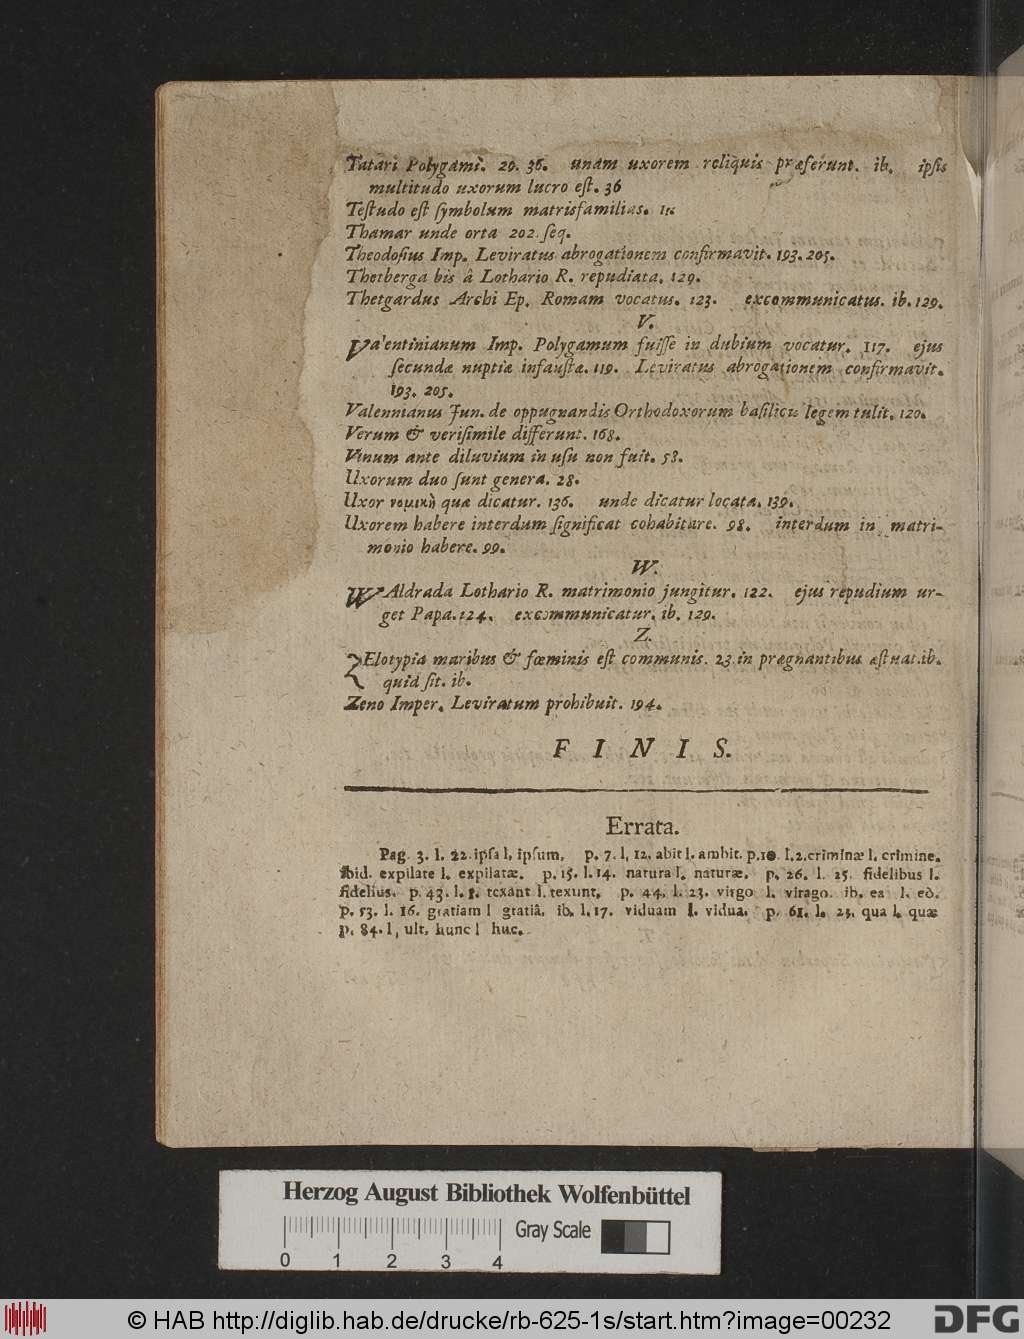 Tatari Polygami. 20. 36. unam uxorem reliquis præferunt. ib. ipſis
multitudo uxorum lucro eſt. 36
Teſtudo eſt ſymbolum matrisfamilias.
Thamar unde orta 202. ſeq.
Theodoſius Imp. Leviratus abrogationem confirmavit. 193. 205.
Thetberga bis â Lothario R. repudiata. 129.
Thetgardus Archi Ep. Romam vocatus. 123. excommunicatus. ib. 129.
V.
Valentinianum Imp. Polygamum fuiſſe in dubium vocatur. 117. ejus
ſecundæ nuptiæ infauſtæ. 119. Leviratus abrogationem confirmavit.
193. 205.
Jun. de oppugnandis Orthodoxorum baſilicis legem tulit. 120.
Verum & veriſimile differunt. 168.
Vinum ante diluvium in uſu non fuit. 58.
Uxorum duo ſunt genera. 28.
Uxor νομικὴ quæ dicatur. 136. unde dicatur locata. 139.
Uxorem habere interdum ſignificat cohabitare. 98. interdum in matri-
monio habere. 99.
W.
WAldrada Lothario R. matrimonio jungitur. 122. ejus repudium ur-
get Papa. 124. excommunicatur. ib. 129.
Z.
ZElotypia maribus & fœminis eſt communis. 23. in prægnantibus æſtuat. ib.
quid ſit. ib.
Zeno Imper. Leviratum prohibuit. 194.
F I N I S.
Errata.
Pag. 3. l. 22. ipſa l. ipſum. p. 7. l. 12. abit l. ambit. p. 10. l. 2. criminæ l. crimine.
ibid. expilate l. expilatæ. p. 15. l. 14. natura l. naturæ. p. 26. l. 25. fidelibus l.
fidelius. p. 43. l. texant l. texunt. p. 44. l. 23. virgo l. virago. ib. ea l. eò.
p. 53. l. 16. gratiam l gratiâ. ib. l. 17. viduam l. vidua. p. 61. l. 23. qua l. quæ
p. 84. l, ult. hunc l huc.
Herzog August Bibliothek Wolfenbüttel
Gray Scale
0 1 2 3 4
© HAB http://diglib.hab.de/drucke/rb-625-1s/start.htm?image=00232
DFG